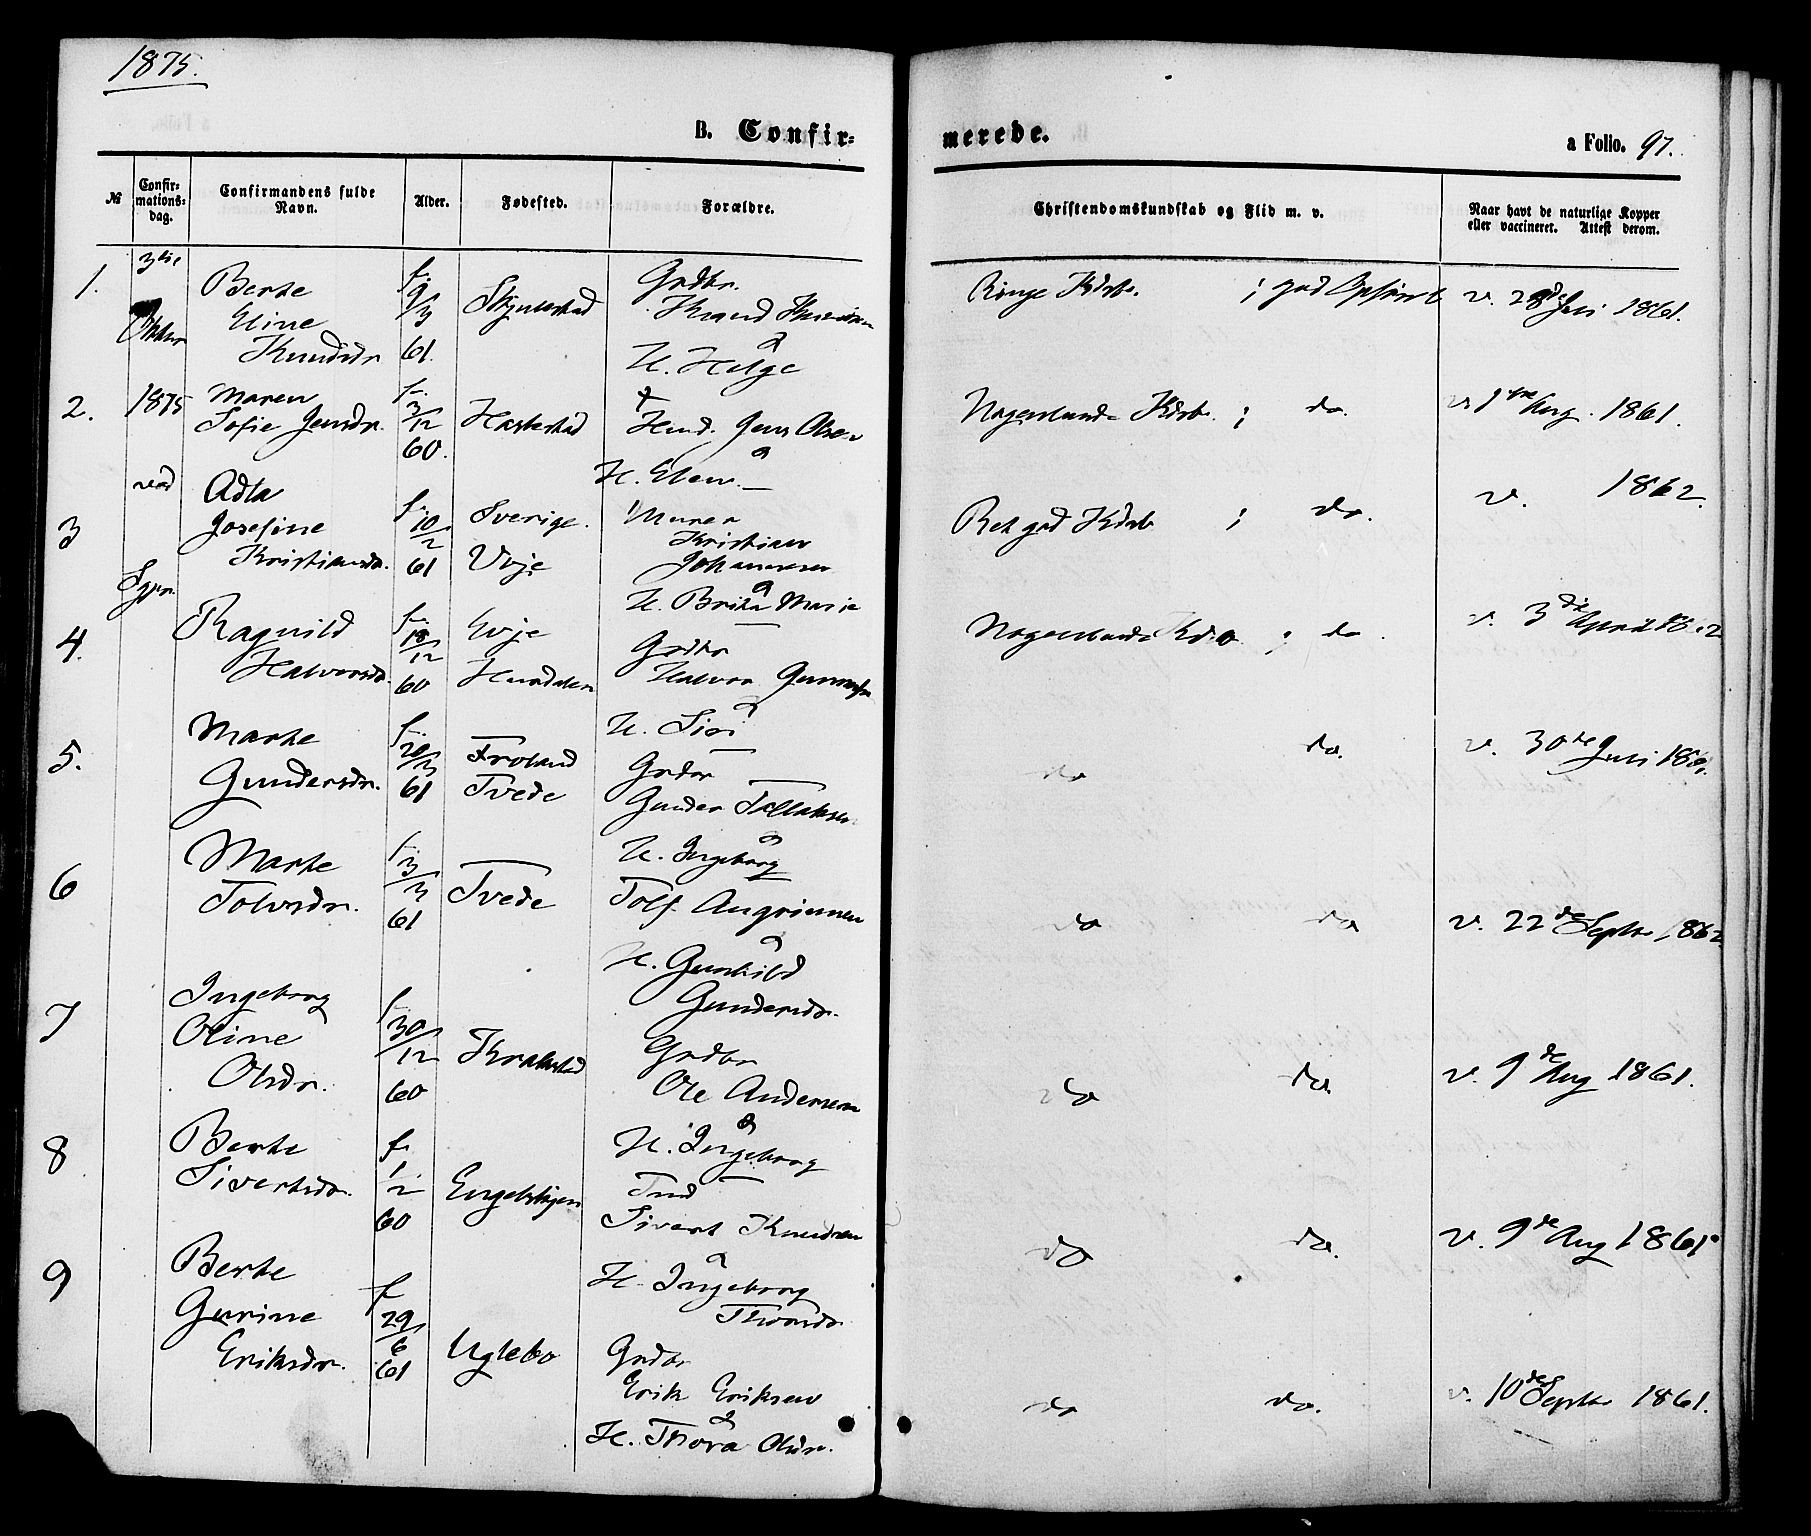 1875.
B. Confir=
merede.
a Folio. 97.
№
Confir=
mations=
dag.
Confirmandens fulde
Navn.
Alder.
Fødested.
Forældre.
Christendomskundskab og Flid m. v.
Naar havt de naturlige Kopper
eller vaccineret. Attest derom.
1.
3die
Oktbr
Berte
Eline
Knudsdr
f.
9/3
61.
Grdbr.
H. Helge
Ringe Kdsb. ; god Opførsel
v. 28de Juli 1861.
2.
1875
Maren
Sofie Jensdr.
f.
3/12
60.
Hasterstad
Jens Olsen
H. Elen
Nogenlunde Kdsb. ; do.
v. 1ste Aug. 1861.
3
ved
Adla
Josefine
Kristiansdr.
f.
10/2
61
Sverige.
Murer
Kristian
Johannesen
H. Brita Marie
Ret god Kdsb ; do.
v. 1862.
4.
Ragnild
Halvorsdr.
f.
18/12
60
Evje
Grdbr
Halvor
H. Siri
Nogenlunde Kdsb ; do.
v. 3die April
5.
Marte
Gundersdr.
f.
20/3
61
Froland
Tvede
Grdbr
Gunder Tellaksen
H. Ingeborg
do
do.
v. 30de Juli
6
Marte
Tolvsdr.
f.
3/3
61
Tvede
Tolf
H. Gunhild
Gundersdr.
do
do
v. 22de Septbr 1862
7
Ingeborg
Oline
Olsdr.
f.
30/12
60
Grdbr
Ole Andersen
H. Ingeborg
do
do.
v. 9de Aug 1861.
8
Berte
Sivertsdr.
f.
1/2
60
Sivert Knudsen
H. Ingeborg
do
do.
v. 9de Aug 1861.
9
Berte
Gurine
Eriksdr.
f
29/6
61
Uglebo
Grdbr
Erik Eriksen
H. Thora Olsdr.
do
do.
v. 10de Septbr 1861.